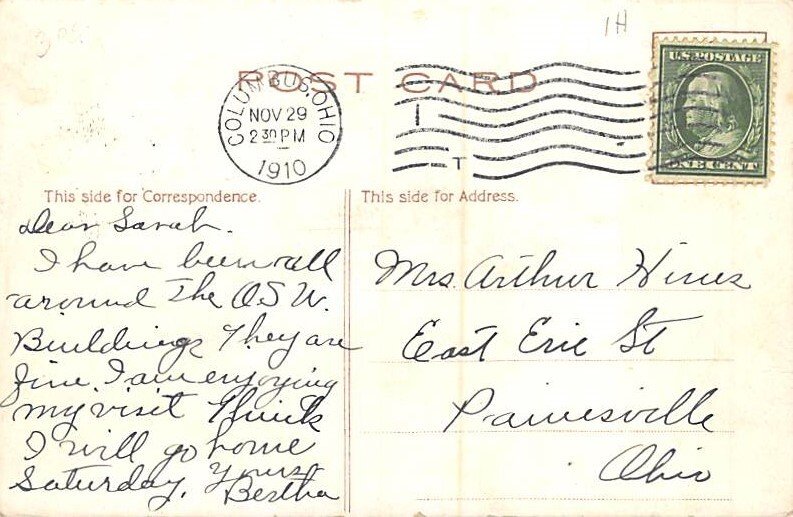 1H
U.S. POSTAGE
POST CARD
COLUMBUS, OHIO
NOV 29
2 30 PM
1910
I
T
ONE CENT
This side for Correspondence.
This side for Address.
Dear Sarah.
I have been all
around The O.S.U.
Buildings They are
fine. I am enjoying
my visit Think
I will go home
Saturday. Yours
Bertha
Mrs. Arthur Hines
East Erie St
Painesville
Ohio